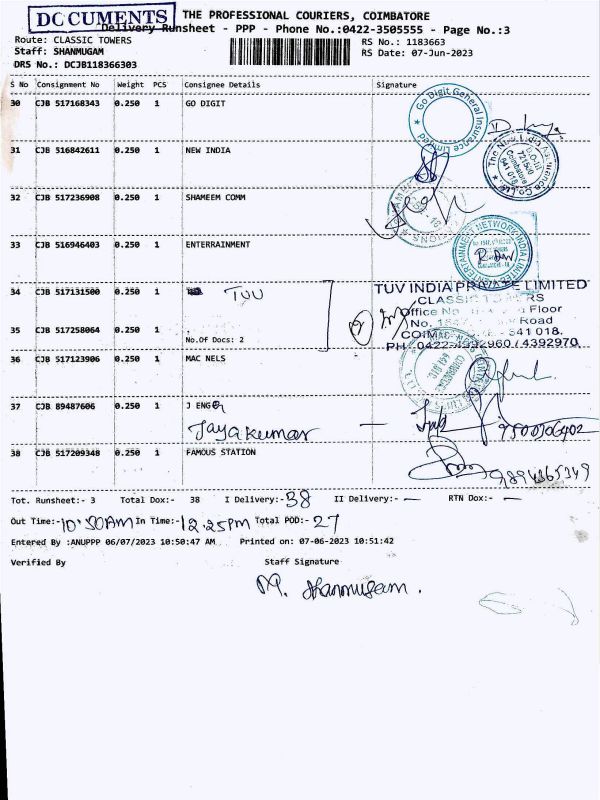 DOCUMENTS
THE PROFESSIONAL COURIERS, COIMBATORE
Delivery Runsheet - PPP - Phone No.:0422-3505555 - Page No.:3
Route: CLASSIC TOWERS
RS No.: 1183663
Staff: SHANMUGAM
RS Date: 07-Jun-2023
DRS No.: DCJB118366303
S No Consignment No Weight PCS Consignee Details Signature
30 CJB 517168343 0.250 1 GO DIGIT
Go Digit General Insurance Limited
31 CJB 516842611 0.250 1 NEW INDIA
The New India Assurance Co Ltd
Coimbatore
641 018
32 CJB 517236908 0.250 1 SHAMEEM COMM
33 CJB 516946403 0.250 1 ENTERRAINMENT
ENTERTAINMENT NETWORK INDIA LIMITED
34 CJB 517131500 0.250 1 TUV
TUV INDIA PRIVATE LIMITED
CLASSIC TOWERS
Office No Floor
35 CJB 517258064 0.250 1 No.Of Docs: 2
Road
COIMBATORE 641 018.
PH: 0422-4392960 / 4392970
36 CJB 517123906 0.250 1 MAC NELS
37 CJB 89487606 0.250 1 J ENG
Jayakumar
9500506402
38 CJB 517209348 0.250 1 FAMOUS STATION
9894865349
Tot. Runsheet:- 3 Total Dox:- 38 I Delivery:- 38 II Delivery:- — RTN Dox:- —
Out Time:- 10:50AM In Time:- 12.25PM Total POD:- 27
Entered By :ANUPPP 06/07/2023 10:50:47 AM Printed on: 07-06-2023 10:51:42
Verified By Staff Signature
M. Shanmugam.